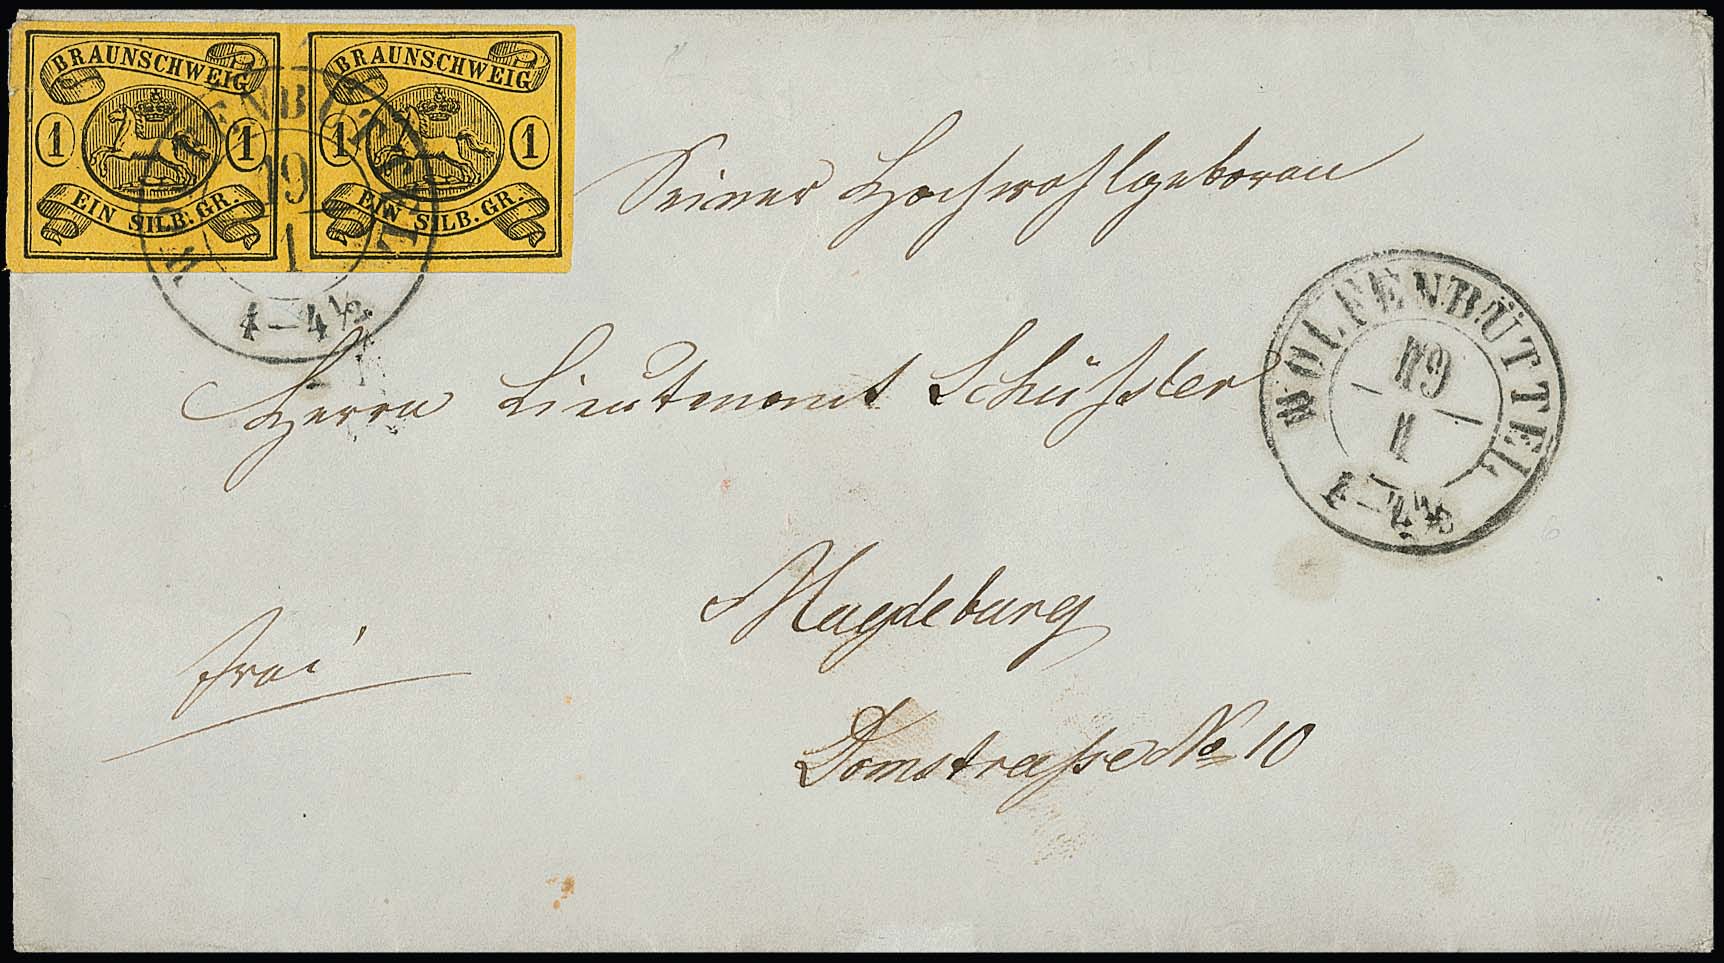 BRAUNSCHWEIG
1 1
EIN SILB. GR.
BRAUNSCHWEIG
1 1
EIN SILB. GR.
19
1
4–4½
Seiner Hochwohlgeboren
Herrn Lieutenant Schüssler
WOLFENBÜTTEL
19
1
4–4½
Magdeburg
frei
Domstraße No 10